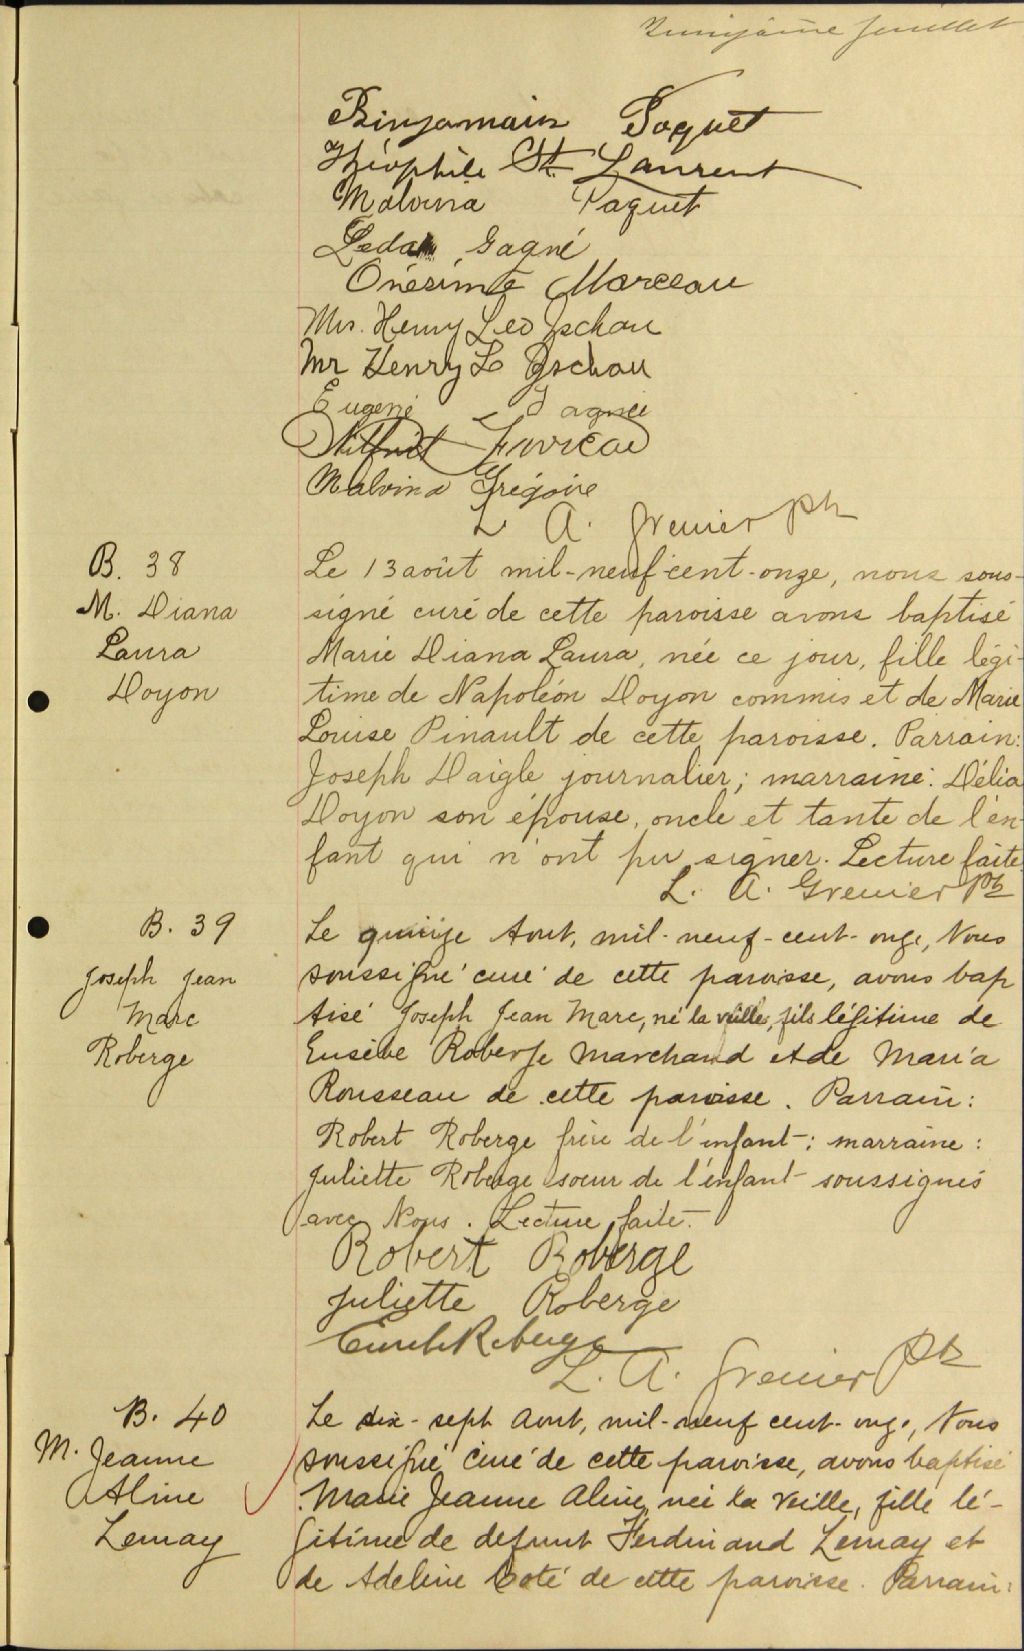 feuillet
Binjamain Paquet
Théophile St. Laurent
Malvina Paquet
Leda Gagné
Onésime Marceau
Mrs. Henry Leo Jschau
Mr Henry L Jschau
Eugenie Gagnée
Wilfrid
Malvina Grégoire
L. A. Grenier ptr
B. 38
M. Diana
Laura
Doyon
Le 13 août mil-neuf-cent-onze, nous sous-
signé curé de cette paroisse avons baptisé
Marie Diana Laura, née ce jour, fille légi-
time de Napoléon Doyon commis et de Marie
Louise Pinault de cette paroisse. Parrain:
Joseph Daigle journalier; marraine: Délia
Doyon son épouse, oncle et tante de l'en-
fant qui n'ont pu signer. Lecture faite.
L. A. Grenier ptr
B. 39
Joseph Jean
Marc
Roberge
Le quinze Aout, mil-neuf-cent-onze, Nous
soussigné curé de cette paroisse, avons bap
tisé Joseph Jean Marc, né la veille, fils légitime de
Eusèbe Roberge marchand et de Maria
Rousseau de cette paroisse. Parrain:
Robert Roberge frère de l'enfant; marraine:
Juliette Roberge soeur de l'enfant soussignés
avec Nous. Lecture faite.
Robert Roberge
Juliette Roberge
Roberge
L. A. Grenier ptr
B. 40
M. Jeanne
Aline
Lemay
Le dix-sept Aout, mil-neuf cent-onze, Nous
soussigné curé de cette paroisse, avons baptisé
Marie Jeanne Aline, née la veille, fille lé-
gitime de defunt Ferdinand Lemay et
de Adeline Coté de cette paroisse. Parrain: